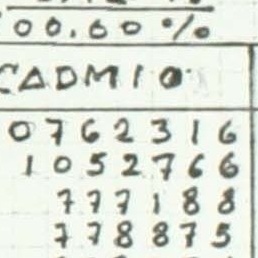 00.60 %
CADMIO
0762316
1052766
777188
778875